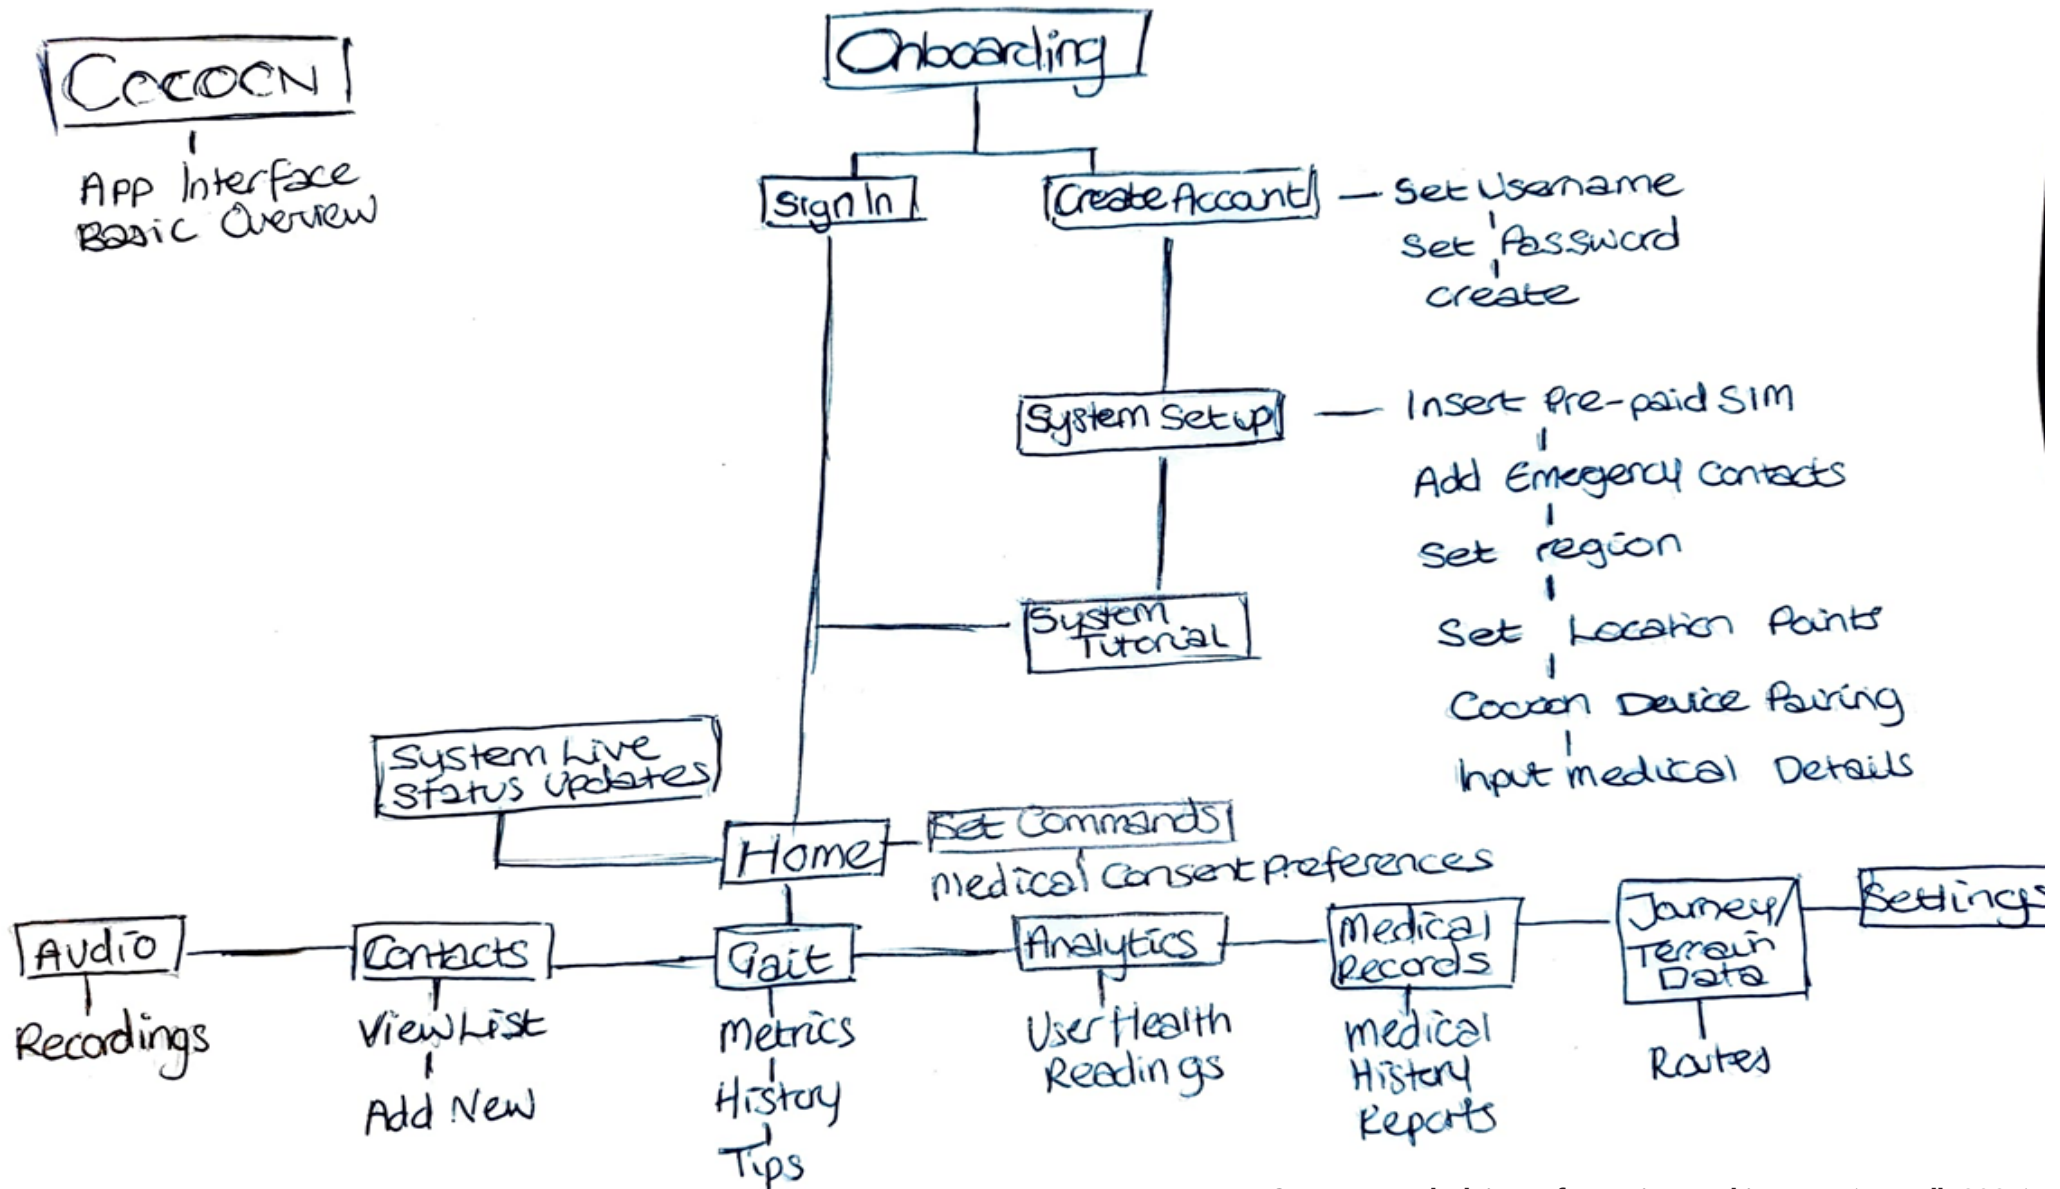 Cocoon
App Interface
Basic Overview
Onboarding
Sign In
Create Account
Set Username
Set Password
create
System Setup
Insert Pre-paid SIM
Add Emegency Contacts
Set region
Set Location Points
Cocoon Device Pairing
Input medical Details
System
Tutorial
System Live
Status Updates
Home
Set Commands
medical Consent preferences
Audio
Recordings
Contacts
View List
Add New
Gait
Metrics
History
Tips
Analytics
User Health
Readings
Medical
Records
medical
History
Reports
Journey/
Terrain
Data
Routes
Settings